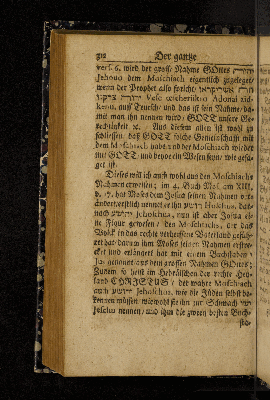 Der gantze
vers. 6. wird der grosse Nahme GOttes יהוה
Jehova dem Maschiach eigentlich zugeleget
wenn der Prophet also spricht:
Adonai zid-
kenu, auff Teutsch: und das ist sein Nahme/ da-
mit man ihn nennen wird/ GOTT unsere Ge-
rechtigkeit ꝛc. Aus diesem allen ist wohl zu
schliessen/ daß GOTT solche Gemeinschafft mit
dem Maschiach habe und der Maschiach wieder
mit GOTT und beyde ein Wesen seyn/ wie gesa-
get ist.
Dieses will ich auch wohl aus den Maschiachs
Nahmen erweisen; im 4. Buch Mos. am XIII.
v. 17. hat Moses dem Josua seinen Nahmen ver-
ändert/ erstlich nennet er ihn הושע Hoschea, dar-
nach יהושע Jehoschua, nun ist aber Josua ei-
ne Figur gewesen des Maschiachs, der das
Volck in das rechte verheissene Vaterland gefüh-
ret hat darum ihm Moses seinen Nahmen erstre-
cket und erlänget hat mit einem Buchstaben י
Ju, genommen aus dem grossen Nahmen GOttes;
Zudem so heist im Hebräischen der rechte Hey-
land CHRISTUS der wahre Maschiach
auch יהושע Jehoschua, wie die Jüden selbst be-
kennen müssen/ wiewohl sie ihn zur Schmach ישו
Jeschu nennen/ und ihm die zween besten Buch-
sta-